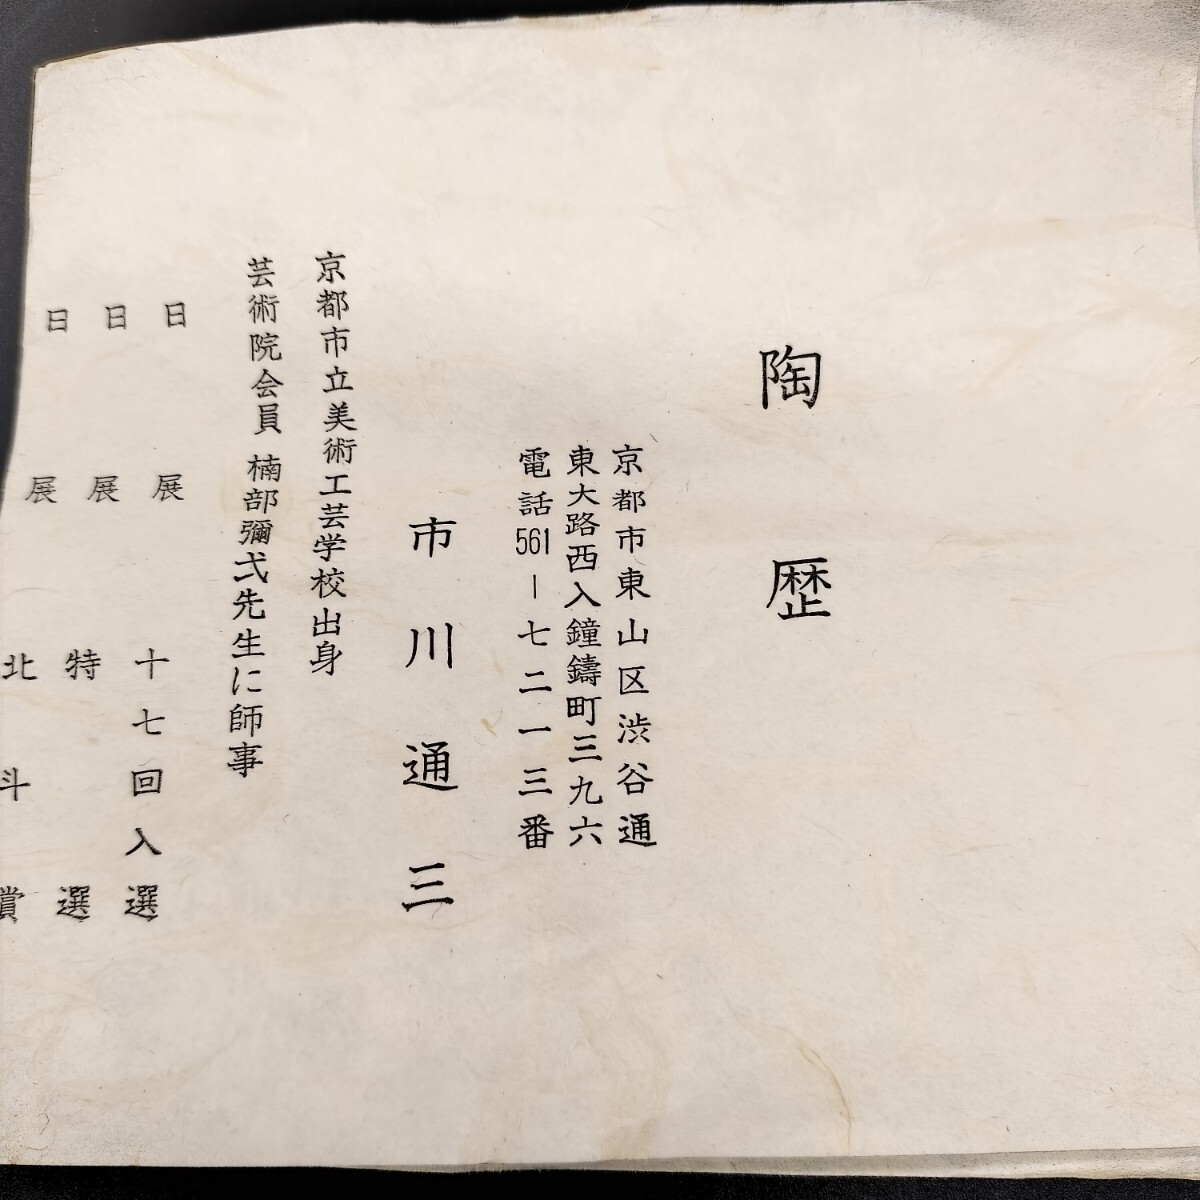 陶歴
京都市東山区渋谷通
東大路西入鐘鑄町三九六
電話561-七二一三番
市川通三
京都市立美術工芸学校出身
芸術院会員 楠部彌弌先生に師事
日展十七回入選
日展特選
日展北斗賞